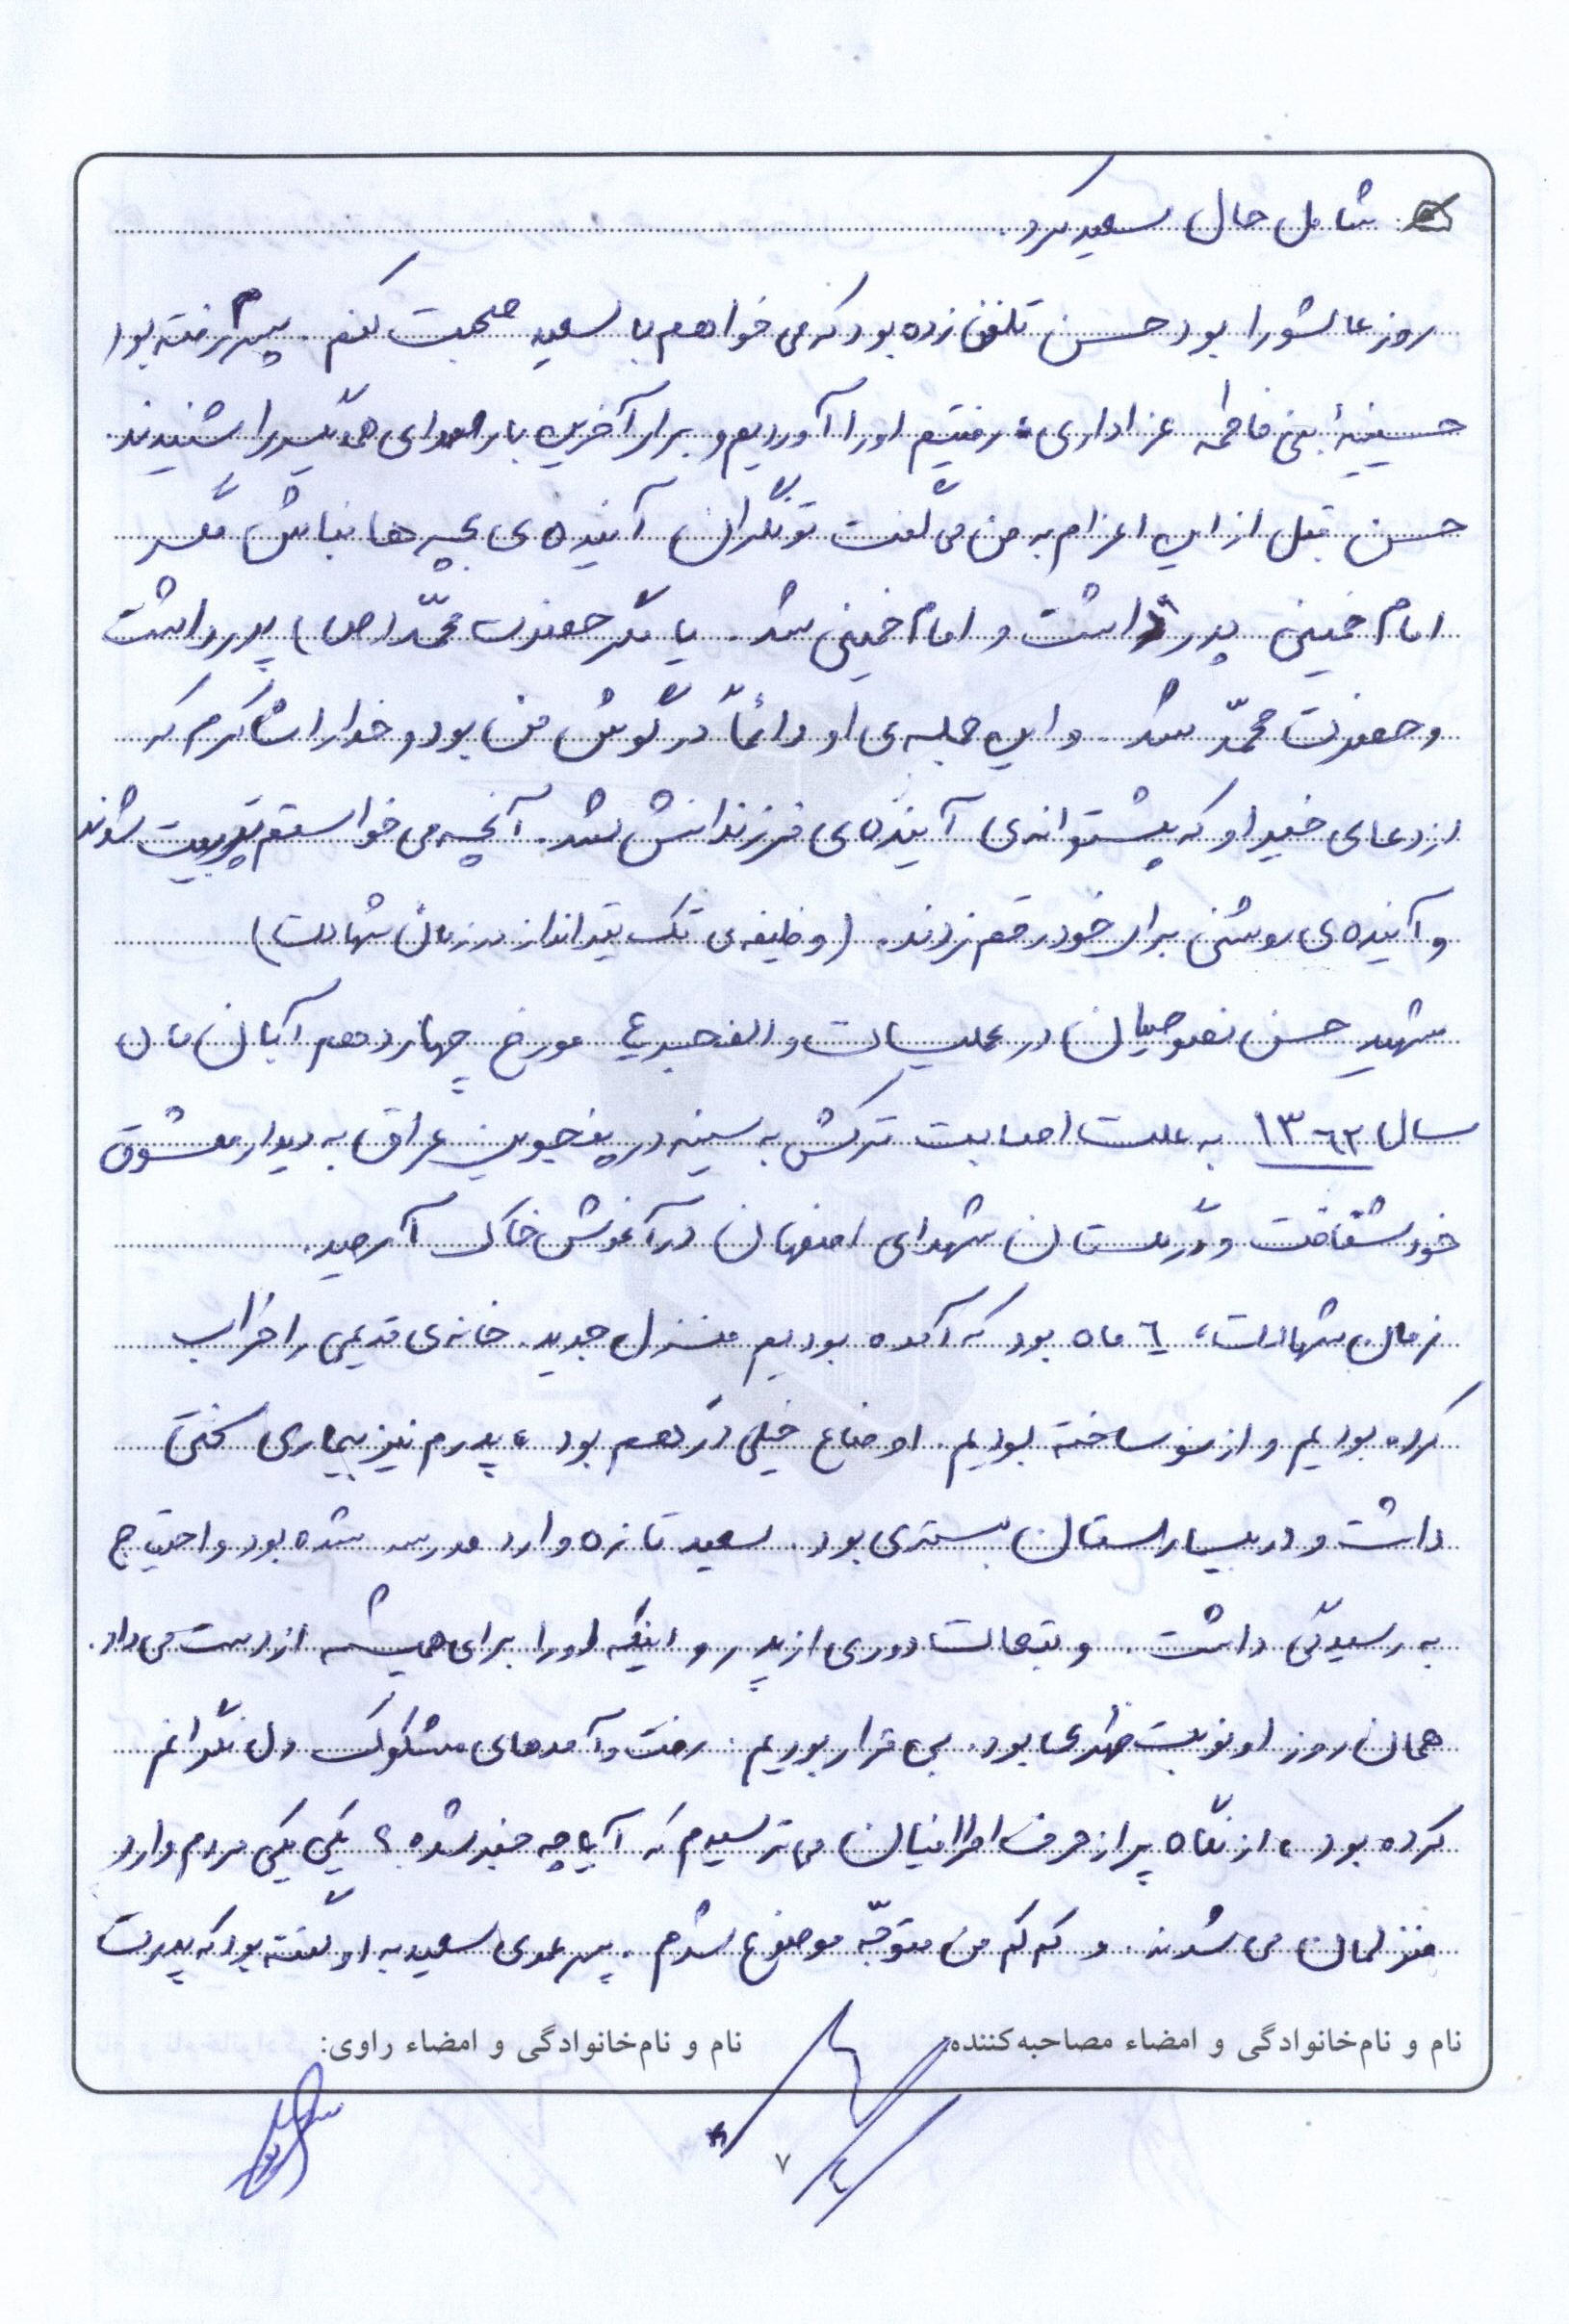 شامل حال سعید کرد.
روز عاشورا بود حسن تلفن زده بود که می خواهم با سعید صحبت کنم. پسرم رفته بود
حسینیهٔ بنی فاطمه عزاداری، رفتیم او را آوردیم و برای آخرین بار صدای همدیگر را شنیدند.
حسن قبل از این اعزام به من می گفت تو نگران آینده ی بچه ها نباش مگر
امام خمینی پدر داشت و امام خمینی شد. یا مگر حضرت محمّد (ص) پدر داشت
و حضرت محمّد شد. و این جمله ی او دائماً در گوش من بود و خدا را شاکرم که
از دعای خیر او که پشتوانه ی آینده ی فرزندانش شد. آنچه می خواستم تربیت شوند
و آینده ی روشنی برای خود رقم زدند. (وظیفه ی تک تیرانداز در زمان شهادت)
شهید حسن نصوحیان در عملیات والفجر ۴ مورخ چهاردهم آبان ماه
سال ۱۳۶۲ به علت اصابت ترکش به سینه در پنجوین عراق به دیدار معشوق
خود شتافت و در گلستان شهدای اصفهان در آغوش خاک آرمید.
زمان شهادت، ٦ ماه بود که آمده بودیم منزل جدید. خانه ی قدیمی را خراب
کرده بودیم و از نو ساخته بودیم. اوضاع خیلی درهم بود، پدرم نیز بیماری سختی
داشت و در بیمارستان بستری بود. سعید تازه وارد مدرسه شده بود و احتیاج
به رسیدگی داشت. و تبعات دوری از پدر و اینکه او را برای همیشه از دست می داد.
همان روز او نوبت ظهری بود. بی قرار بودیم. رفت و آمدهای مشکوک دل نگرانم
کرده بود، از نگاه پر از حرف اطرافیان می ترسیدم که آیا چه خبر شده؟ یکی یکی مردم وارد
منزلمان می شدند. و کم کم من متوجّه موضوع شدم. پسر عموی سعید به او گفته بود که پدرت
نام و نام‌خانوادگی و امضاء مصاحبه‌کننده:
نام و نام‌خانوادگی و امضاء راوی:
۷